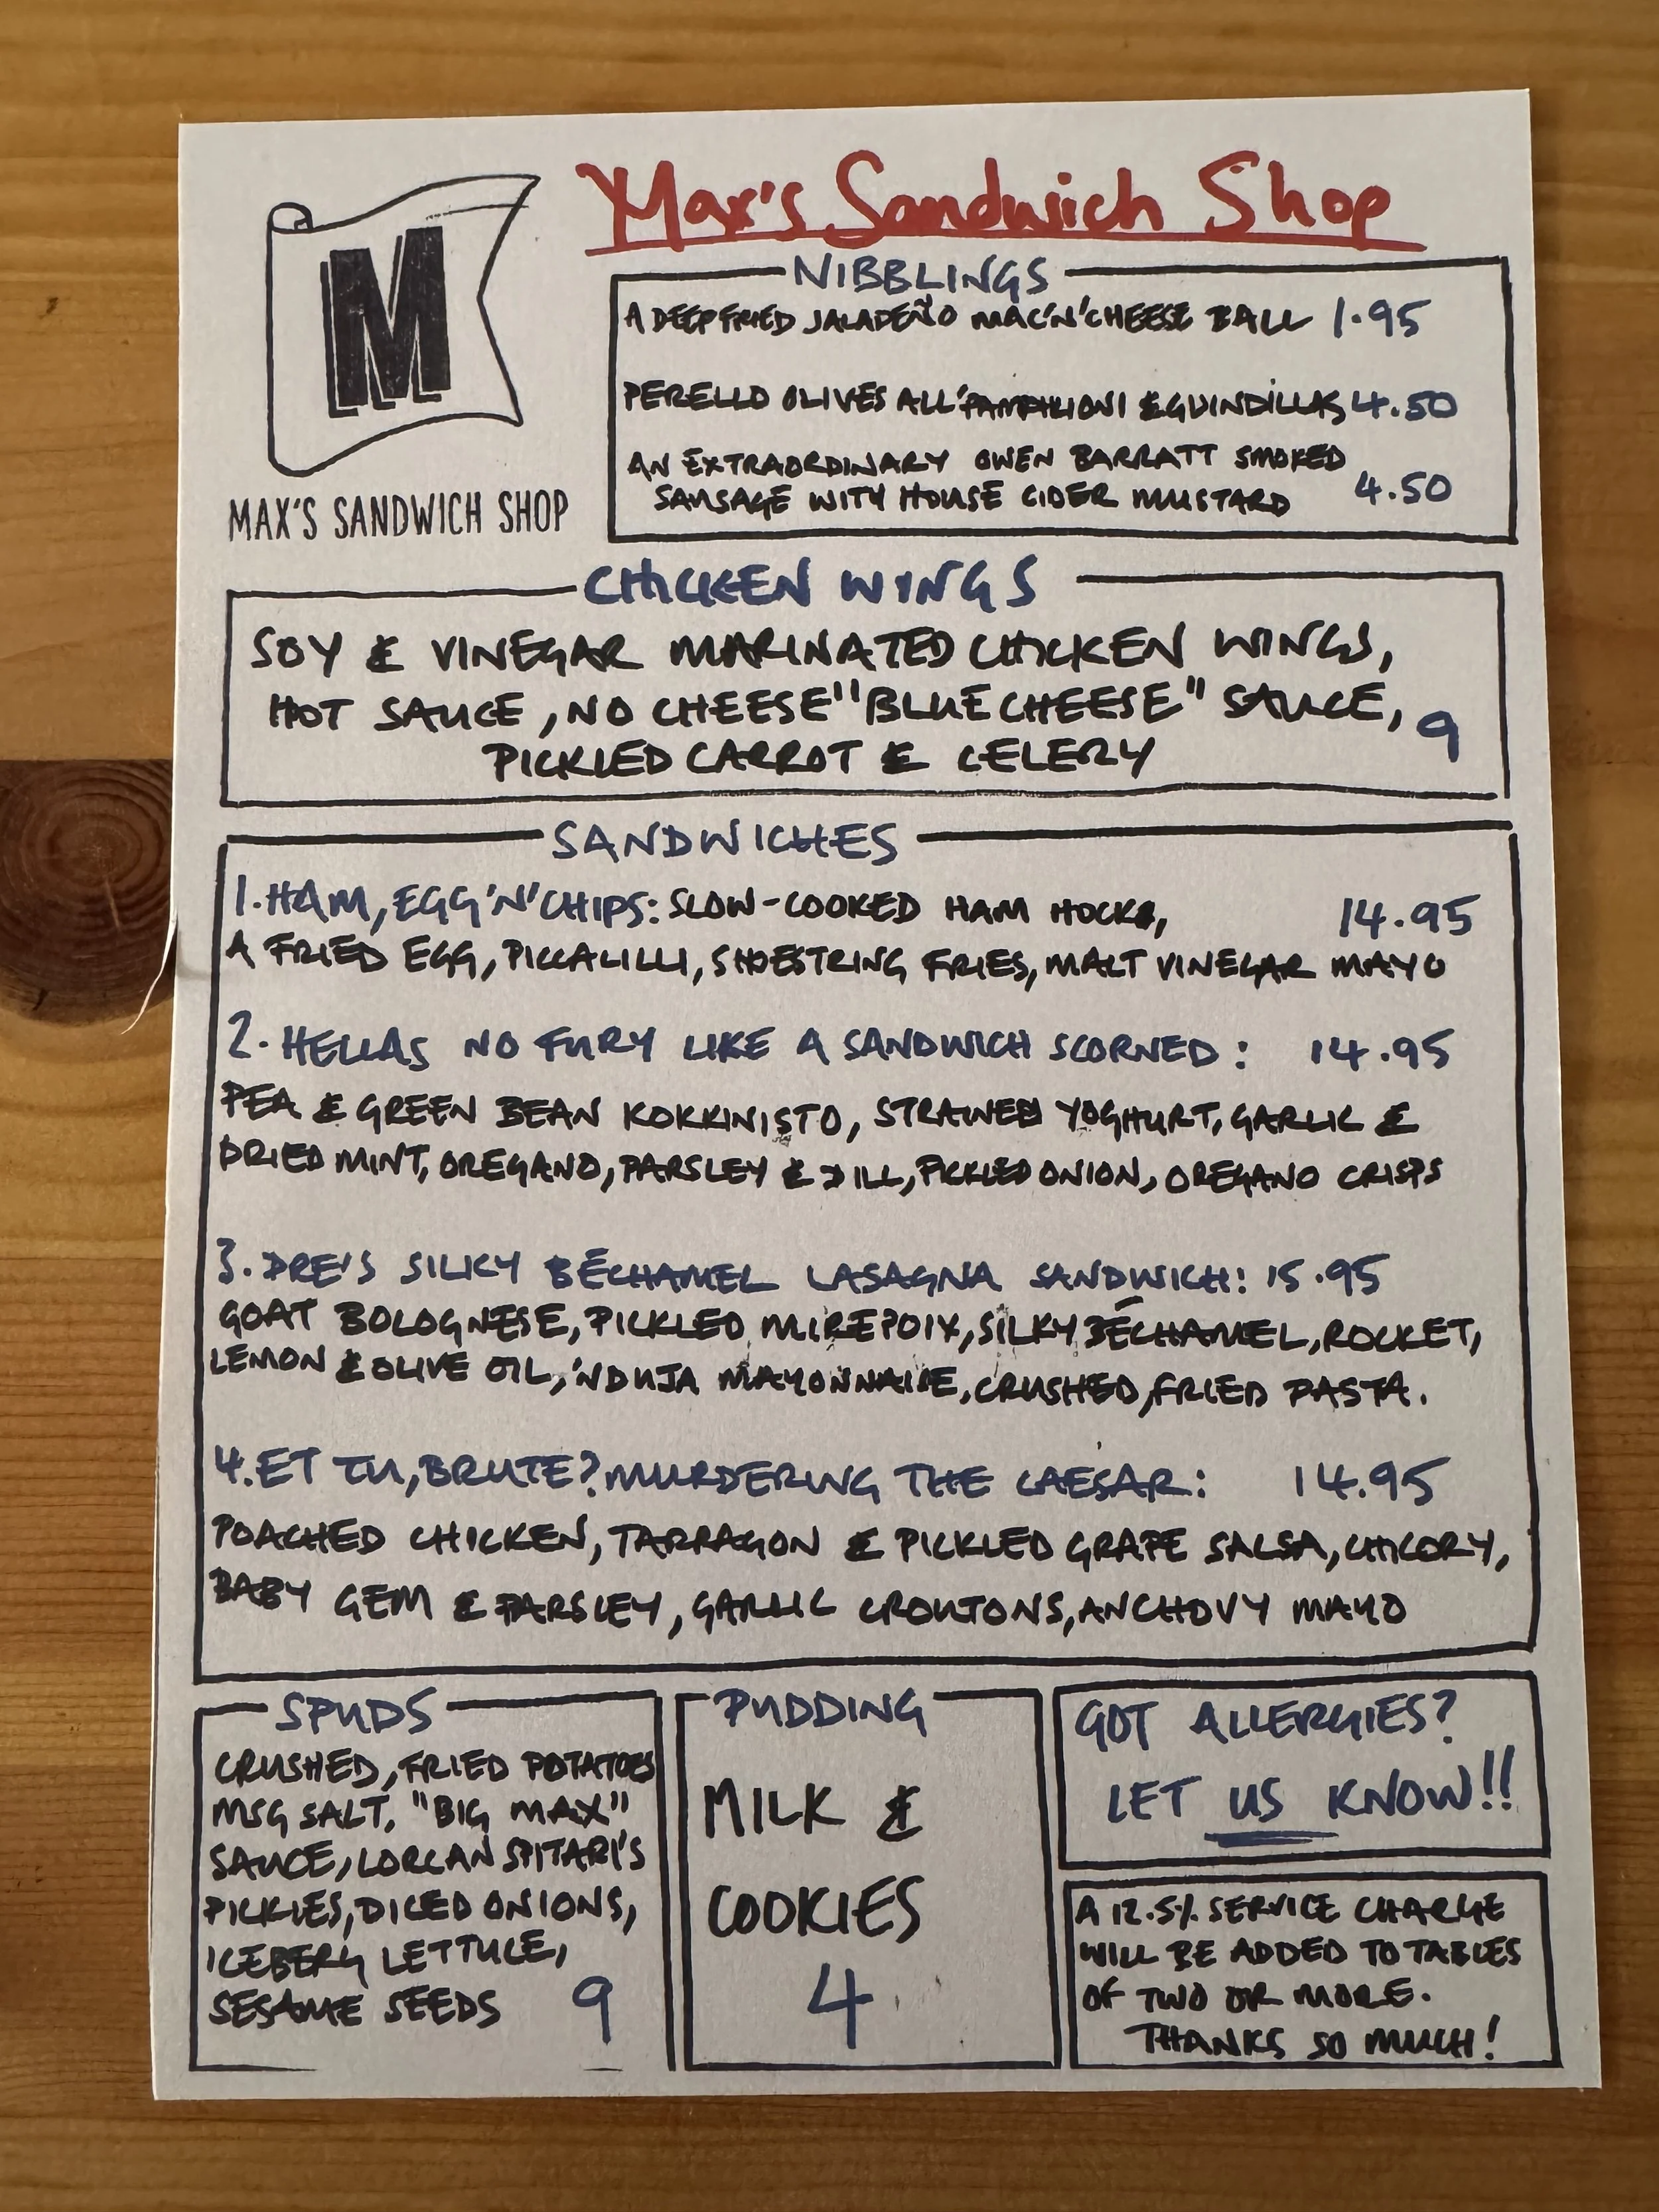 Max's Sandwich Shop
M
MAX'S SANDWICH SHOP
NIBBLINGS
A DEEP FRIED JALAPEÑO MAC'N'CHEESE BALL 1.95
PERELLO OLIVES ALL' &GUINDILLAS 4.50
AN EXTRAORDINARY OWEN BARRATT SMOKED
SAUSAGE WITH HOUSE CIDER MUSTARD 4.50
CHICKEN WINGS
SOY & VINEGAR MARINATED CHICKEN WINGS,
HOT SAUCE, NO CHEESE "BLUE CHEESE" SAUCE, 9
PICKLED CARROT & CELERY
SANDWICHES
1. HAM, EGG 'N' CHIPS: SLOW-COOKED HAM HOCK, 14.95
A FRIED EGG, PICCALILLI, SHOESTRING FRIES, MALT VINEGAR MAYO
2. HELLAS NO FURY LIKE A SANDWICH SCORNED: 14.95
PEA & GREEN BEAN KOKKINISTO, STRAINED YOGHURT, GARLIC &
DRIED MINT, OREGANO, PARSLEY & DILL, PICKLED ONION, OREGANO CRISPS
3. DRE'S SILKY BÉCHAMEL LASAGNA SANDWICH: 15.95
GOAT BOLOGNESE, PICKLED MIREPOIX, SILKY BÉCHAMEL, ROCKET,
LEMON & OLIVE OIL, 'NDUJA MAYONNAISE, CRUSHED, FRIED PASTA.
4. ET TU, BRUTE? MURDERING THE CAESAR: 14.95
POACHED CHICKEN, TARRAGON & PICKLED GRAPE SALSA, CHICORY,
BABY GEM & PARSLEY, GARLIC CROUTONS, ANCHOVY MAYO
SPUDS
CRUSHED, FRIED POTATOES
MSG SALT, "BIG MAX"
SAUCE, LORCAN SPITARI'S
PICKLES, DICED ONIONS,
ICEBERG LETTUCE,
SESAME SEEDS 9
PUDDING
MILK &
COOKIES
4
GOT ALLERGIES?
LET US KNOW!!
A 12.5% SERVICE CHARGE
WILL BE ADDED TO TABLES
OF TWO OR MORE.
THANKS SO MUCH!